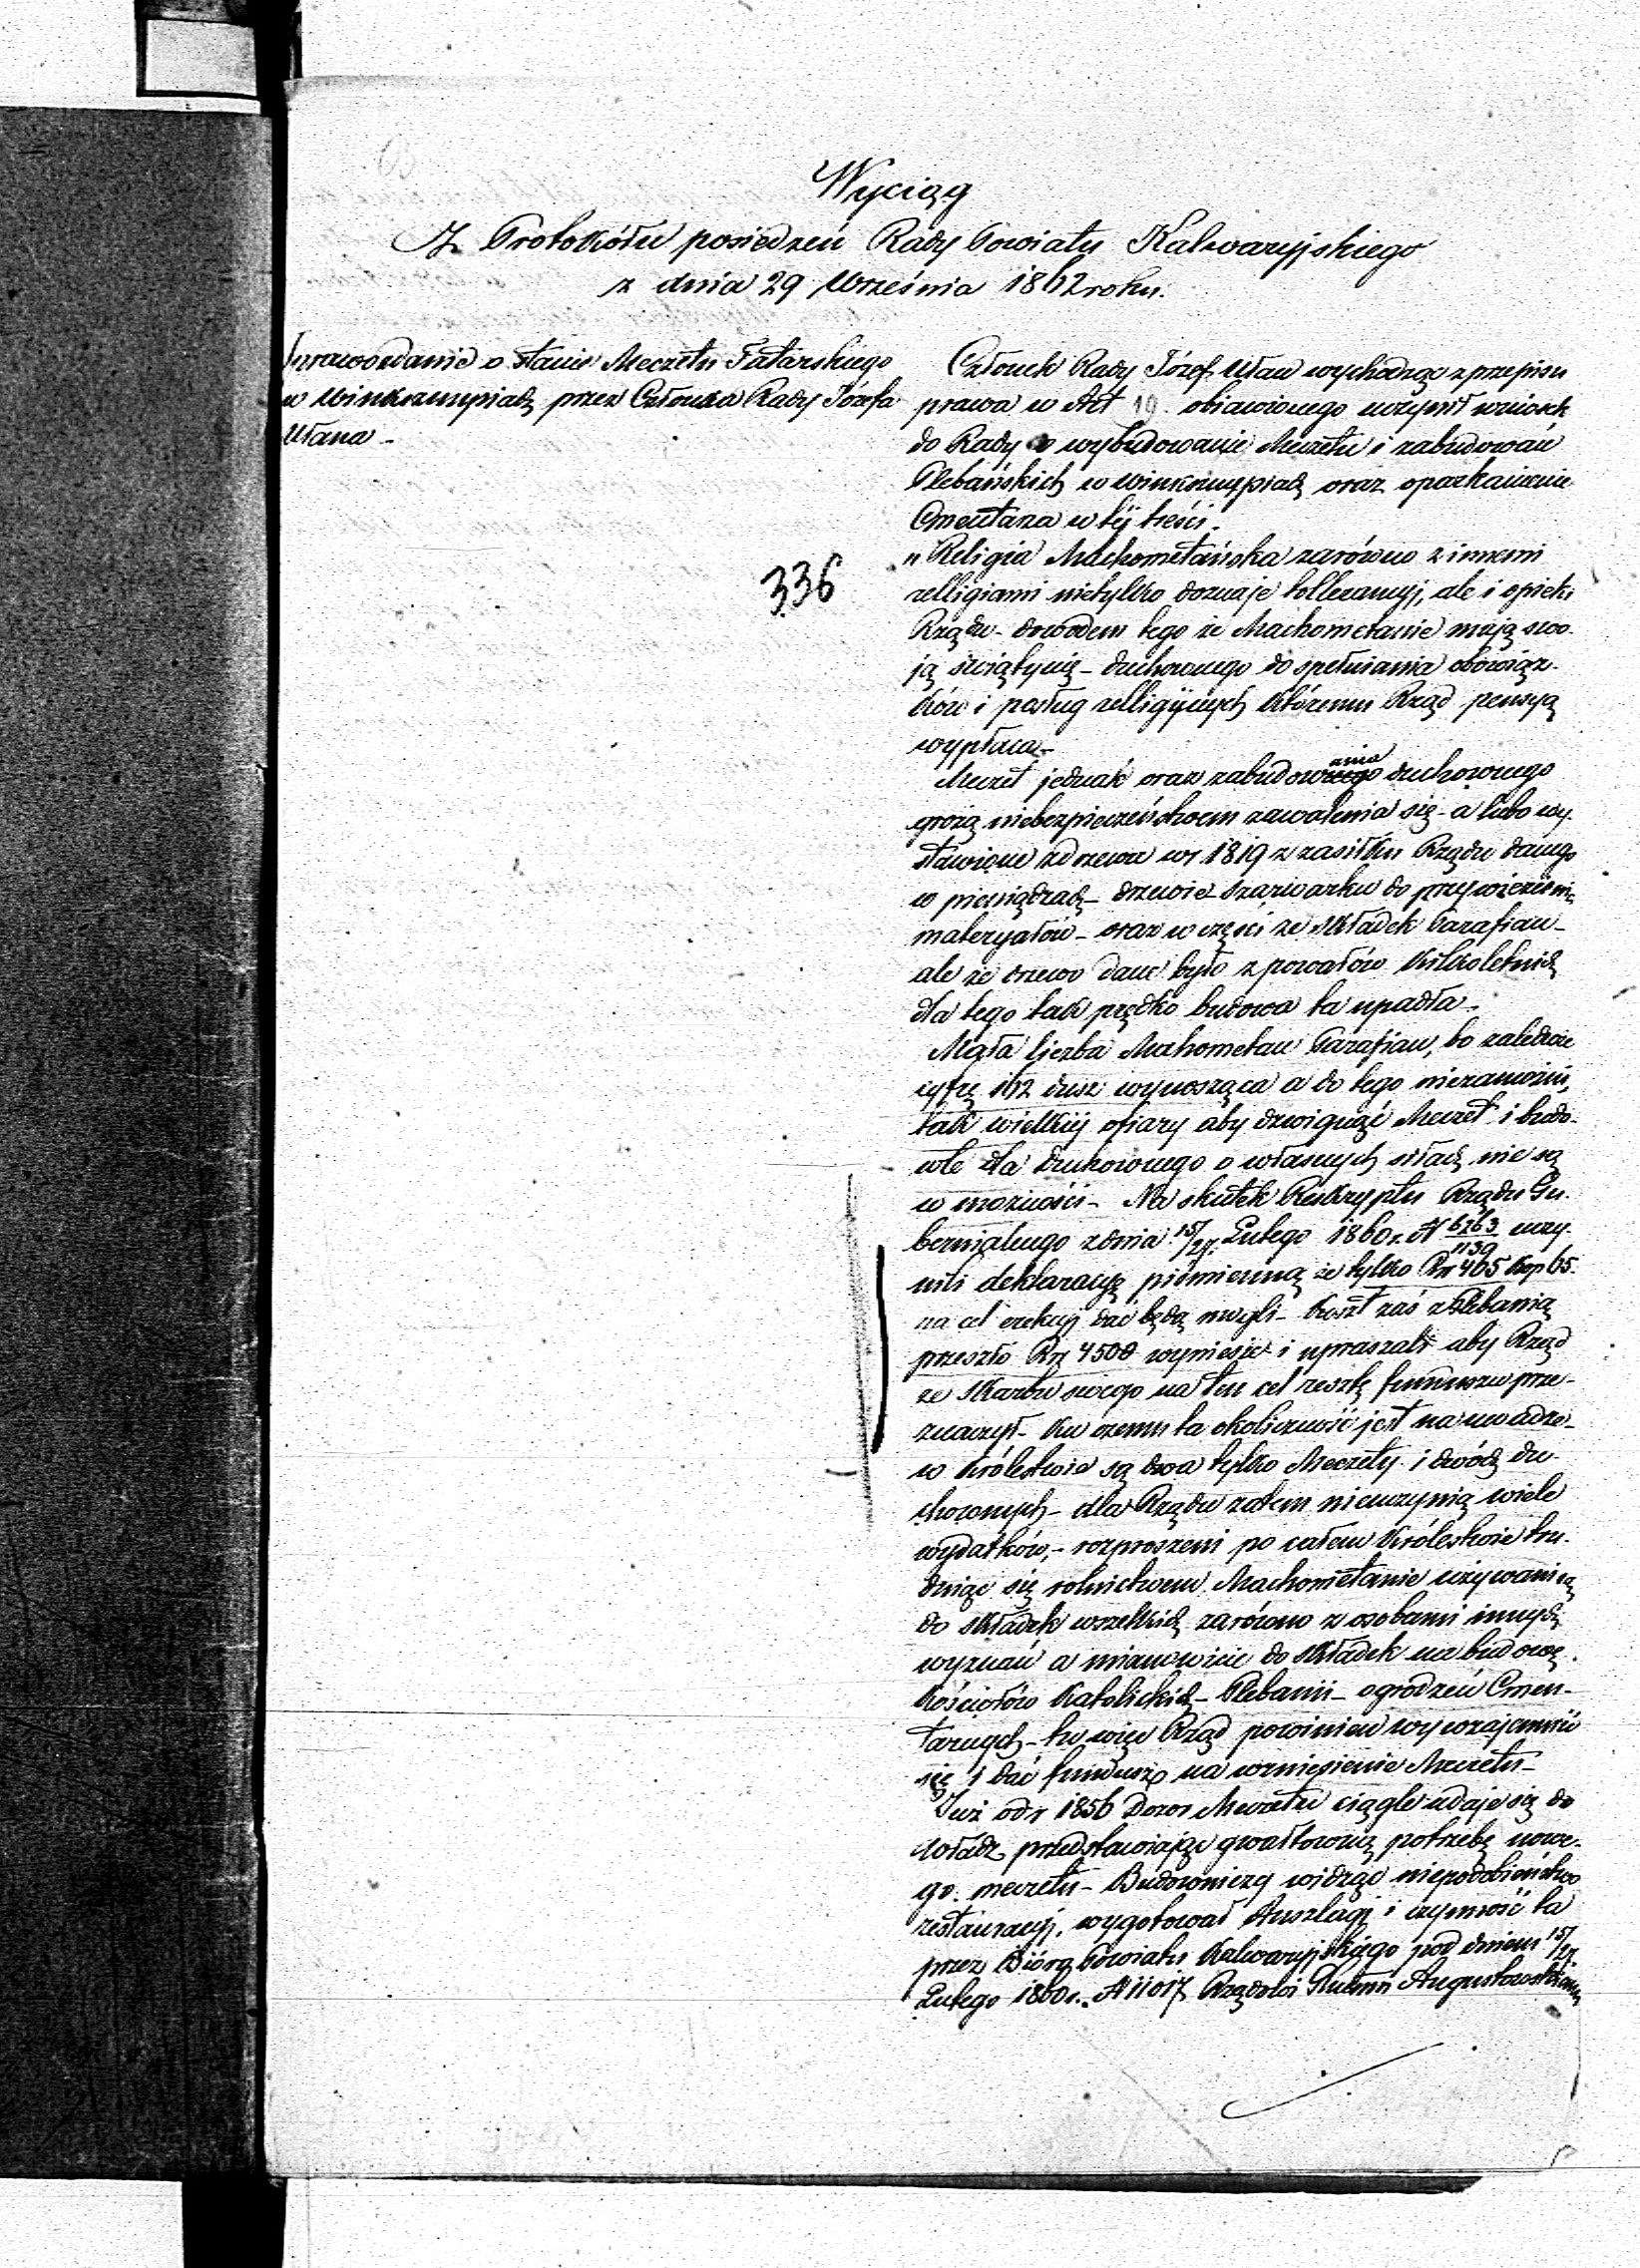 Wyciąg
Z Protokółu posiedzeń Rady Powiatu Kalwaryjskiego
z dnia 29 Września 1862 roku.
Sprawozdanie o stanie Meczetu Tatarskiego
w Winksznupiach przez Członka Rady Józefa
Ułana -
336
Członek Rady Józef Ułan wychodząc z przepisu
prawa w Art 19. objawionego uczynił wniosek
do Rady o wybudowanie Meczetu i zabudowań
Plebańskich w Winksznupiach oraz oparkanienie
Cmentarza w tÿ treści.
" Religia Machometańska zarówno z innemi
relligiami nietylko doznaje tollerancyi, ale i opieki
Rządu - dowodem tego że Machometanie mają swo-
ją świątynię - duchownego do spełniania obowiąz-
ków i posług relligijnych któremu Rząd pensyą
wypłaca -
Meczet jednak oraz zabudowania duchownego
grożą niebezpieczeństwem zawalenia się - a lubo wy-
stawione z drzewa w r. 1819 z zasiłku Rządu danego
w pieniądzach - drzewie szarwarku do przywiezienia
materyałów - oraz w części ze składek Parafian -
ale że drzewo dane było z powałów kilkoletnich
dla tego tak prędko budowa ta upadła -
Mała liczba Machometan Parafian, bo zaledwie
cyfrę 162 dusz wynosząca a do tego niezamożni,
tak wielkiÿ ofiary aby dzwignąć Meczet i budo-
wle dla duchownego o własnych siłach nie są
w możności - Na skutek Reskryptu Rządu Gu-
bernialnego z dnia 15/27 Lutego 1860 r. N 6263/1139 uczy-
nili deklaracyę piśmienną że tylko Rsr 465 kop 65.
na cel erekcyj dać będą mogli - Koszt zaś z Plebanią
przeszło Rsr 4500 wyniesie i upraszali aby Rząd
ze Skarbu swego na ten cel resztę funduszu prze-
znaczył - Ku czemu ta okoliczność jest na uwadze -
w Królestwie są dwa tylko Meczety i dwóch du-
chownych - dla Rządu zatem nieuczynią wiele
wydatków, - rozproszeni po całem Królestwie tru-
dniąc się rolnictwem Machometanie używani są
do składek wszelkich zarówno z osobami innych
wyznań a mianowicie do składek na budowę
Kościołów Katolickich - Plebanii - ogrodzeń Cmen-
tarnych - tu więc Rząd powinien wywzajemnić
się i dać fundusz na wzniesienie Meczetu -
Już od r 1856 Dozor Meczetu ciągle udaje się do
Władz przedstawiając gwałtowną potrzebę nowe-
go meczetu - Budowniczy widząc niepodobieństwo
restauracyj, wygotował Anszlagi i czynność ta
przez Biórą Powiatu Kalwaryjskiego pod dniem 15/27
Lutego 1860 r. N 11017 Rządowi Gubern Augustowskiemu